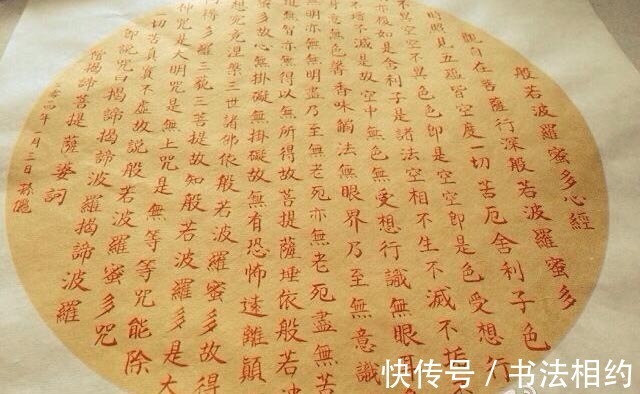 般若波羅蜜多心經
觀自在菩薩行深般若波羅蜜多
時照見五蘊皆空度一切苦厄舍利子色
不異空空不異色色即是空空即是色受想行
亦復如是舍利子是諸法空相不生不滅不垢
不增不減是故空中無色無受想行識無眼耳
身意無色聲香味觸法無眼界乃至無意識
無明亦無無明盡乃至無老死亦無老死盡無苦
無智亦無得以無所得故菩提薩埵依般若波
多故心無掛礙無掛礙故無有恐怖遠離顛
想究竟涅槃三世諸佛依般若波羅蜜多故得
多羅三藐三菩提故知般若波羅蜜多是大
咒是大明咒是無上咒是無等等咒能除
一切苦真實不虛故說般若波羅蜜多咒
即說咒曰揭諦揭諦波羅揭諦波羅
僧揭諦菩提薩婆訶
年一月三日
快传号 / 书法相约